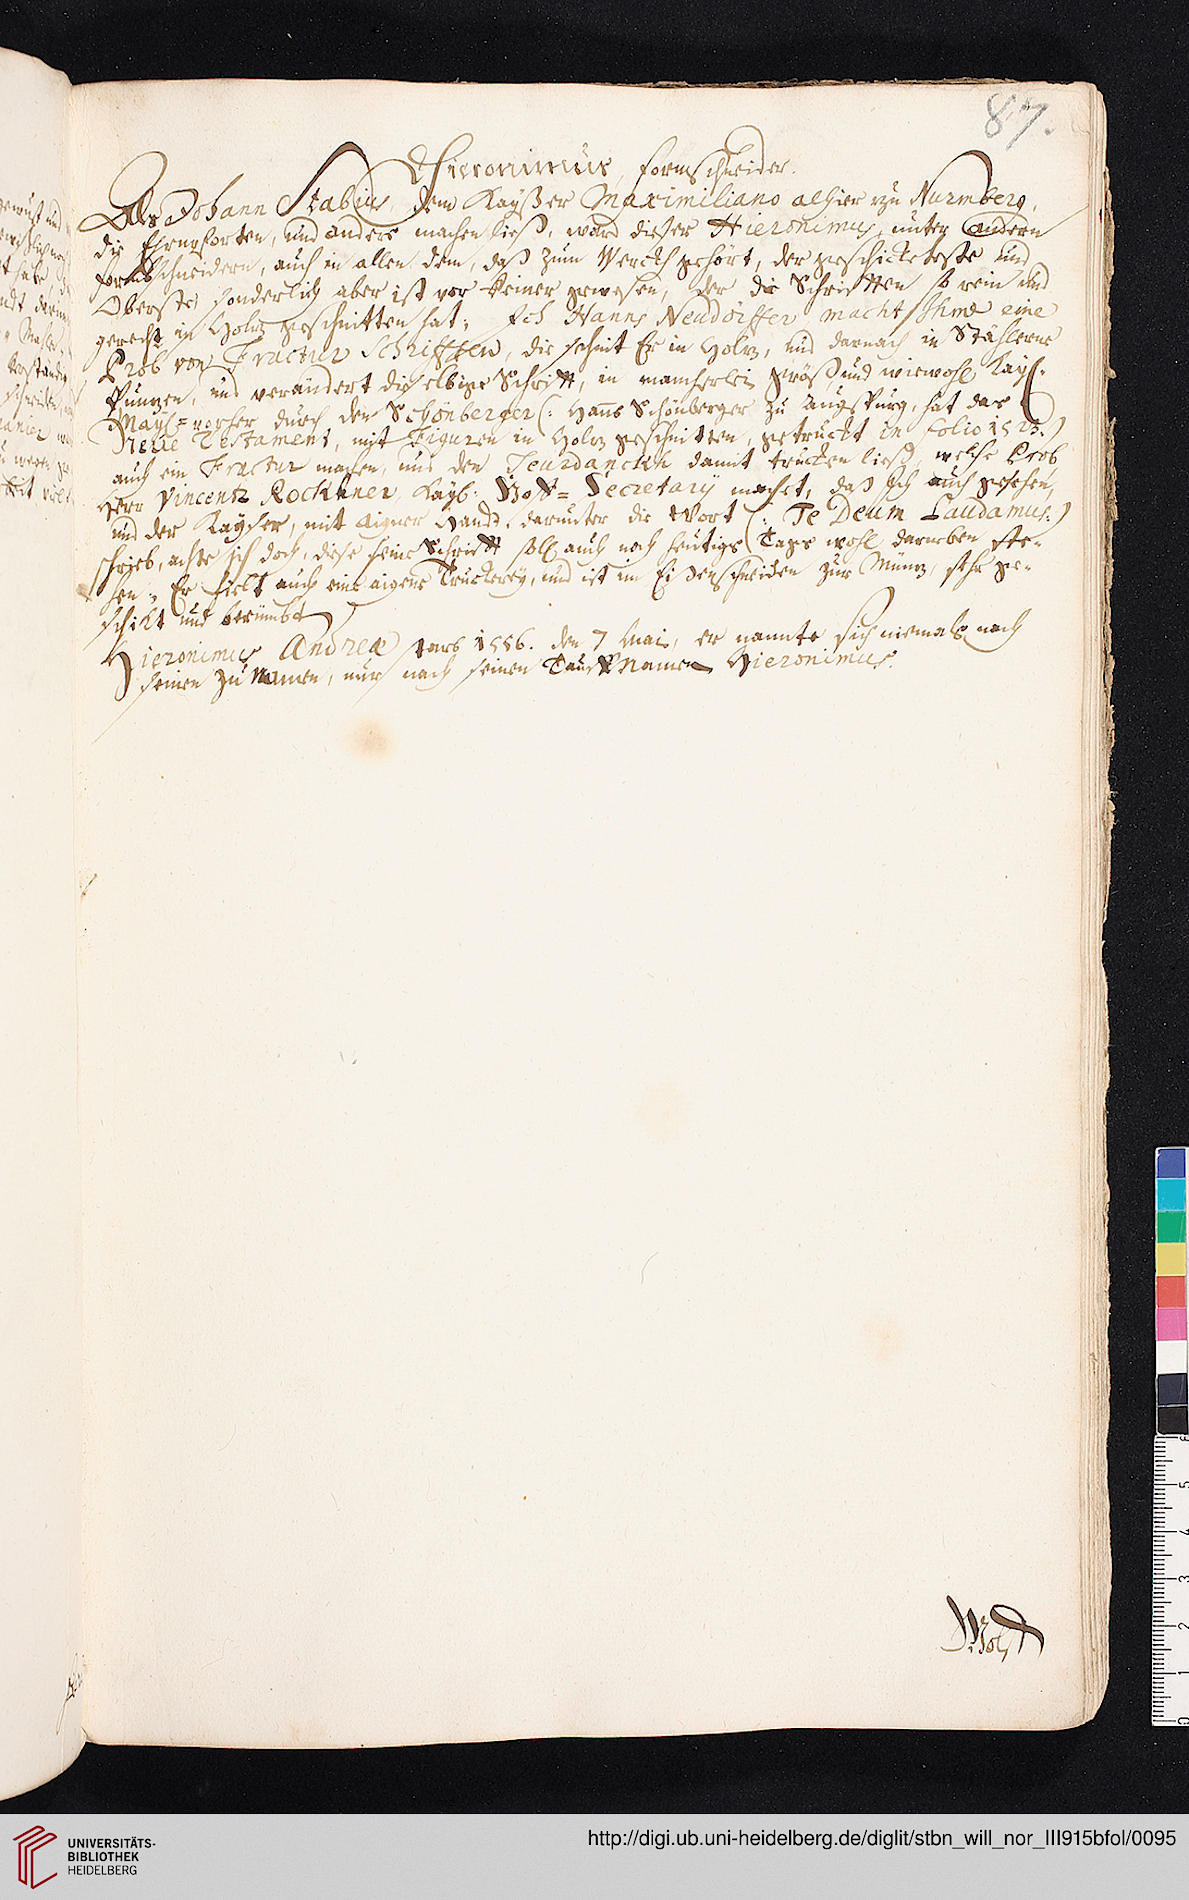 87.
Hieronimus, Formschneider.
Als Johann Stabius, dem Kayßer Maximiliano alhier zu Nurmberg,
die Ehrnpforten, und anders machen ließ, ward dießer Hieronimus, unter andern
Formschneidern, auch in allen dem, daß zum Werckh gehört, der geschickteste und
Oberste, sonderlich aber ist vor keiner gewesen, der die Schrifften so rein und
gerecht in Holz geschnitten hat; Ich Hanns Neudörffer macht Ihme eine
Prob von Fractur Schrifften, die schnit Er in Holz, und darnach in Stählerne
Punzen, und verändert dieselbige Schrifft, in mancherleÿ größ, und wiewohl Kaÿs:
Maÿs= vorher durch den Schönberger (: Hanns Schönberger zu Augspurg, hat das
Neue Testament, mit Figuren in Holz geschnitten, getruckt in Folio 1523.)
auch ein Fractur machen, und den Teurdanckh damit trucken ließ, welche Prob
Herr Vincentz Rockhner, Kaÿs: Hoff= Secretarÿ machet, daß Ich auch gesehen,
und der Kayser, mit aigner Handt, darunter die Wort (: Te Deum Laudamus:)
schrieb, achte ich doch, diese seine Schrifft soll auch noch heutigs Tags wohl darneben ste-
hen; Er hielt auch eine aigene Truckereÿ, und ist im Eisenschneiden zur Münz, sehr ge-
schikt und berümbt
Hieronimus Andreæ starb 1556. den 7 Mai, er nannte sich niemals nach
seinen Zunamen, nur nach seinen Tauff Namen Hieronimus.
Wolff
UNIVERSITÄTS-
BIBLIOTHEK
HEIDELBERG
http://digi.ub.uni-heidelberg.de/diglit/stbn_will_nor_III915bfol/0095